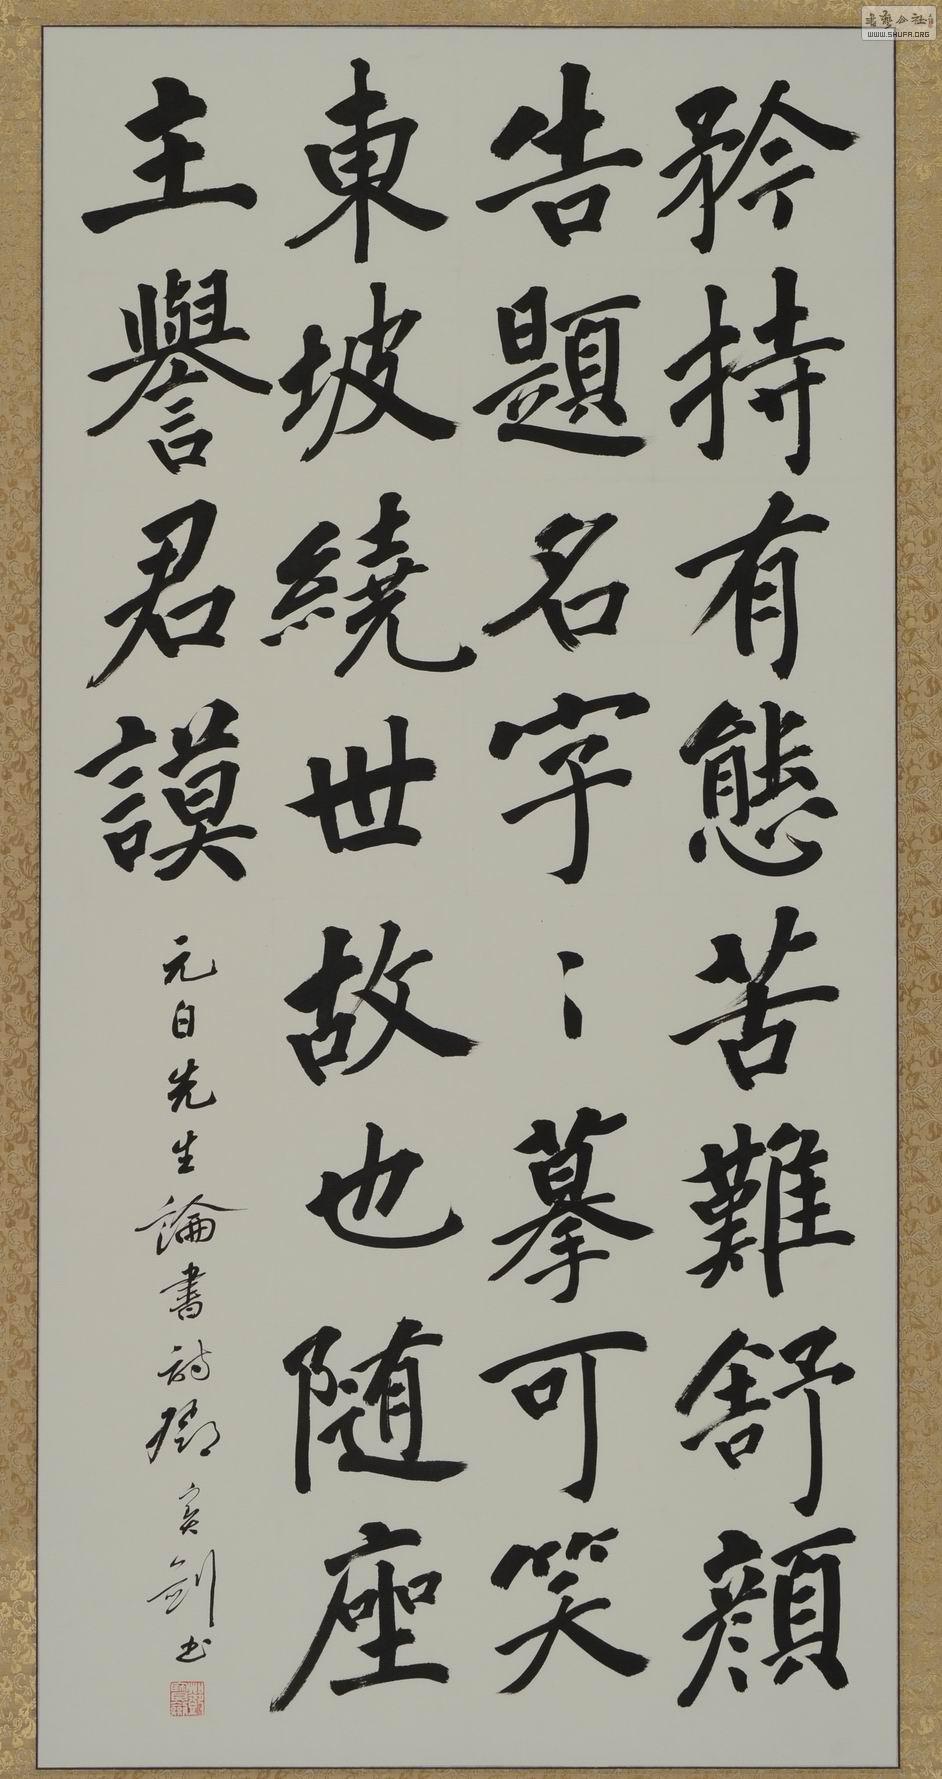 矜持有態苦難舒顏
告題名字〻摹可笑
東坡繞世故也随座
主譽君謨
元白先生論書詩鄧實劍书
書藝公社
WWW.SHUFA.ORG